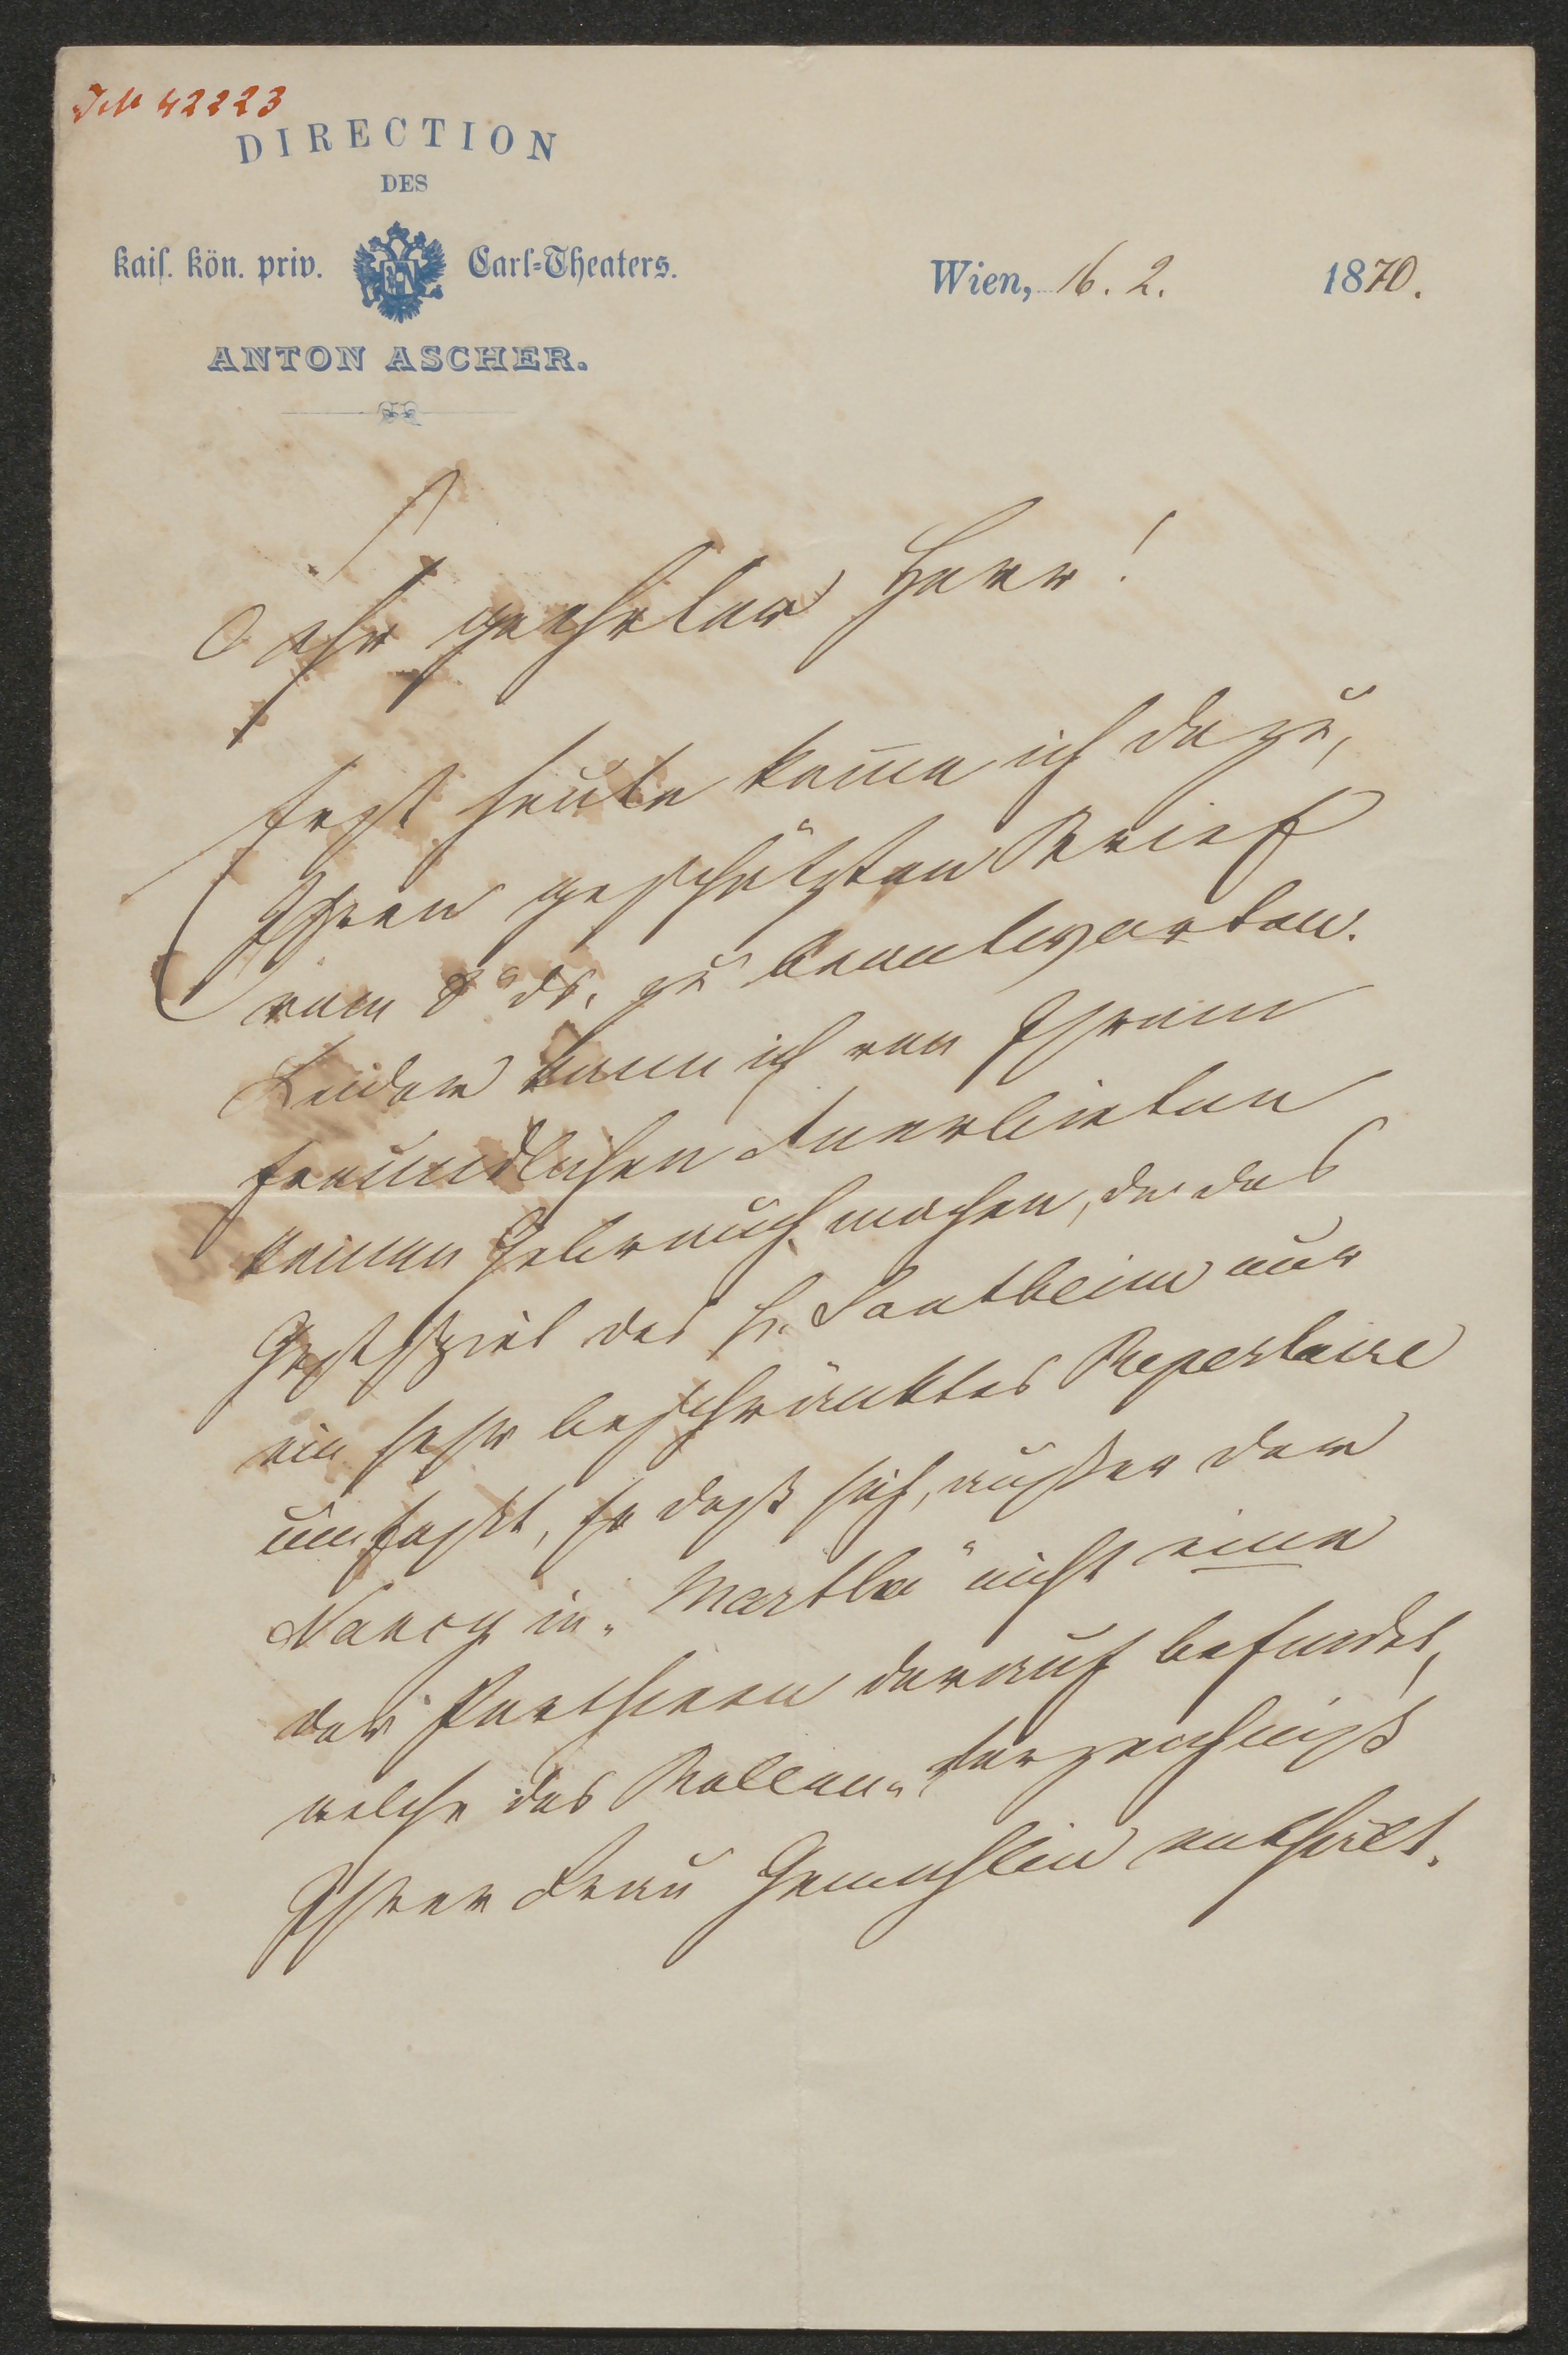 J.N. 42223
DIRECTION
DES
kais. kön. priv. Carl-Theaters.
ANTON ASCHER.
Wien, 16. 2. 1870.
Sehr geehrter Herr!
Erst heute kom̄e ich dazu,
Ihren geschätzten Brief
vom 8 ds. zu beantworten.
Leider kann ich von Ihrem
freundlichen Anerbieten
keinen Gebrauch machen, da das
Gastspiel des H. Sontheim nur
ein sehr beschränktes Repertoire
umfaßt, so daß sich, außer der
Nancy in „Martha" nicht eine
der Parthieen darauf befindet,
welche das Rollen-Verzeichniß
Ihrer Frau Gemahlin enthält.